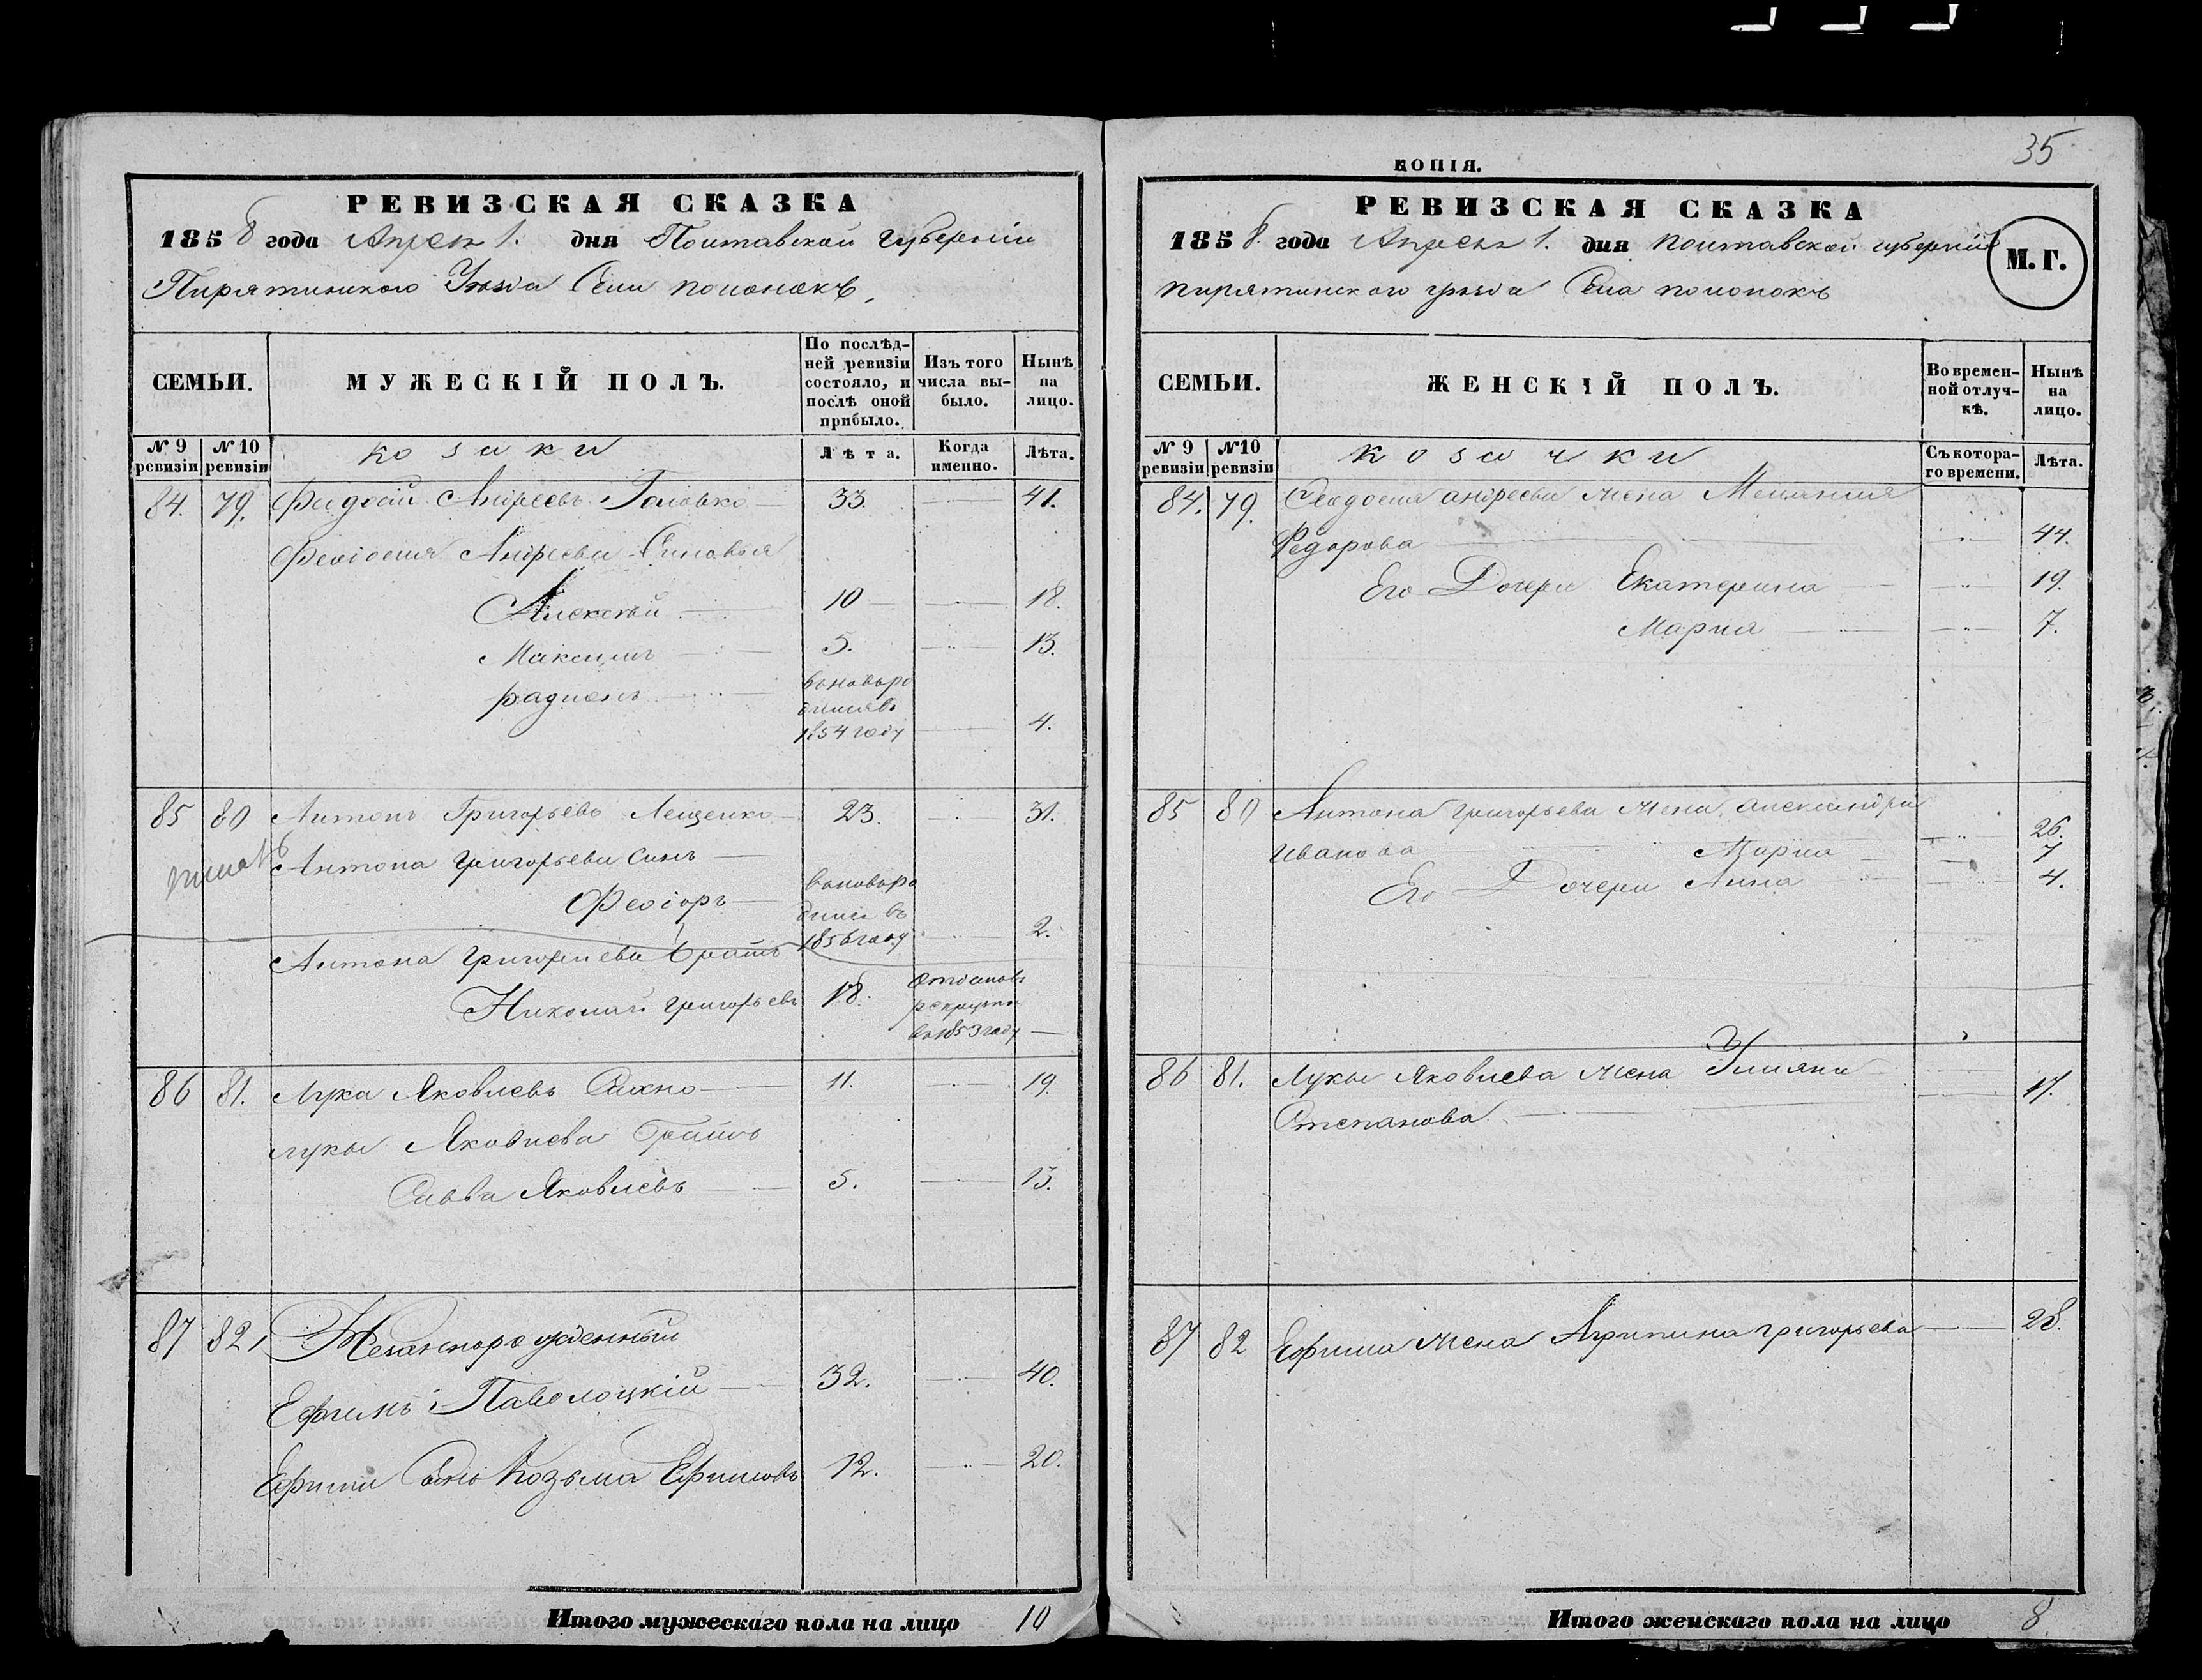 35
РЕВИЗСКАЯ СКАЗКА
1858 года Апреля 1. дня Полтавской губернии
Пирятинского Уезда Села
СЕМЬИ.
МУЖЕСКІЙ ПОЛЪ.
По послѣд-
ней ревизіи
состояло, и
послѣ оной
прибыло.
Изъ того
числа вы-
было.
Нынѣ
на
лицо.
№ 9
ревизіи
№ 10
ревизіи
козаки
Лѣта.
Когда
именно.
Лѣта.
84. 79. Андреевъ Головко 33. 41.
Андреева Сыновья
Алексѣй 10 18.
Максимъ 5. 13.
Радионъ
вновьро
1854 году 4.
85 80 Антонъ Григорьевъ Лещенко 23. 31.
Антона Григорьева Сынъ
Феодоръ
вновьро
1856 году 2.
Антона Григориева братъ
Николай Григорьевъ 18.
рекруты
1853 году
86 81. Лука Яковлевъ Сахно 11. 19.
Луки Яковлева братъ
Савва Яковлевъ 5. 13.
87 82 Незаконорожденный
Ефимъ Паволоцкій 32. 40.
Ефима Сынъ Козьма Ефимовъ 12. 20.
Итого мужескаго пола на лицо 10
КОПІЯ.
РЕВИЗСКАЯ СКАЗКА
1858 года Апреля 1. дня Полтавской губернии
Пирятинского уезда Села
М. Г.
СЕМЬИ.
ЖЕНСКІЙ ПОЛЪ.
Во времен-
ной отлуч-
кѣ.
Нынѣ
на
лицо.
№ 9
ревизіи
№10
ревизіи
козачки
Съ котора-
го времени.
Лѣта.
84. 79. Андреева жена Мелания
Федорова 44.
Его Дочери Екатерина 19.
Мария 7.
85 80 Антона Григорьева жена Александра
Иванова 26.
Мария 7
Его Дочери Анна 4.
86 81. Луки Яковлева жена Улияна
Степанова 17.
87 82 Ефима жена Агрипина Григорьева 28.
Итого женскаго пола на лицо 8